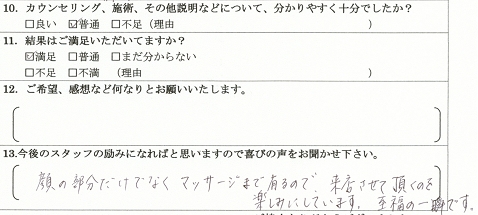 10. カウンセリング、施術、その他説明などについて、分かりやすく十分でしたか？
□良い ☑普通 □不足（理由　　　　　　　　　　）
11. 結果はご満足いただいてますか？
☑満足 □普通 □まだ分からない
□不足 □不満 （理由　　　　　　　　　　）
12. ご希望、感想など何なりとお願いいたします。
13.今後のスタッフの励みになればと思いますので喜びの声をお聞かせ下さい。
顔の部分だけでなく マッサージまで有るので、来店させて頂くのを
楽しみにしています。至福の一瞬です。